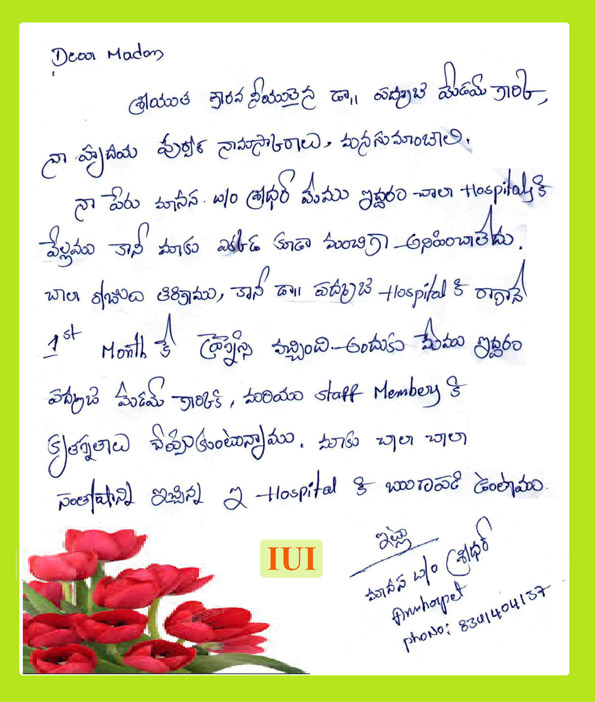 Dear Madam
శ్రీయుత గౌరవనీయులైన డా,, పద్మజ మేడమ్ గారికి,
నా హృదయ పూర్వక నామస్కారాలు, మనసుమాంజాలి.
నా పేరు మానస. w/o శ్రీధర్ మేము ఇద్దరం చాలా Hospitals కి
వెల్లాము కానీ మాకు ఎక్కడ కూడా మంచిగా అనిపించాలేదు.
చాలా తిరిగాము, కానీ డా,, పద్మజ Hospital కి రాగానే
1st Month కే ప్రెగ్నెన్సి వచ్చింది. అందుకు మేము ఇద్దరం
పద్మజ మేడమ్ గారికి, మరియు staff Members కి
కృతజ్ఞతాలు చెప్పుకుంటున్నాము. మాకు చాలా చాలా
సంతోషాన్ని ఇచ్చిన ఇ Hospital కి ఋణపడి ఉంటాము.
ఇట్లు
మానస w/o శ్రీధర్
phoNo: 8341404137
IUI